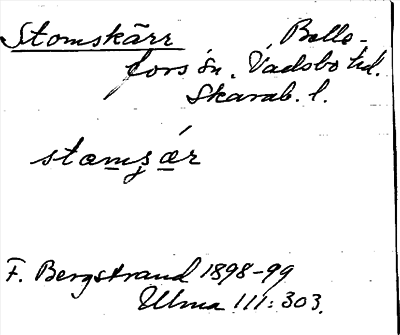 Stomskärr Belle-
fors sn. Vadsbo hd.
Skarab. l.
stamşǽr
F. Bergstrand 1898-99
Ulma 111:303.